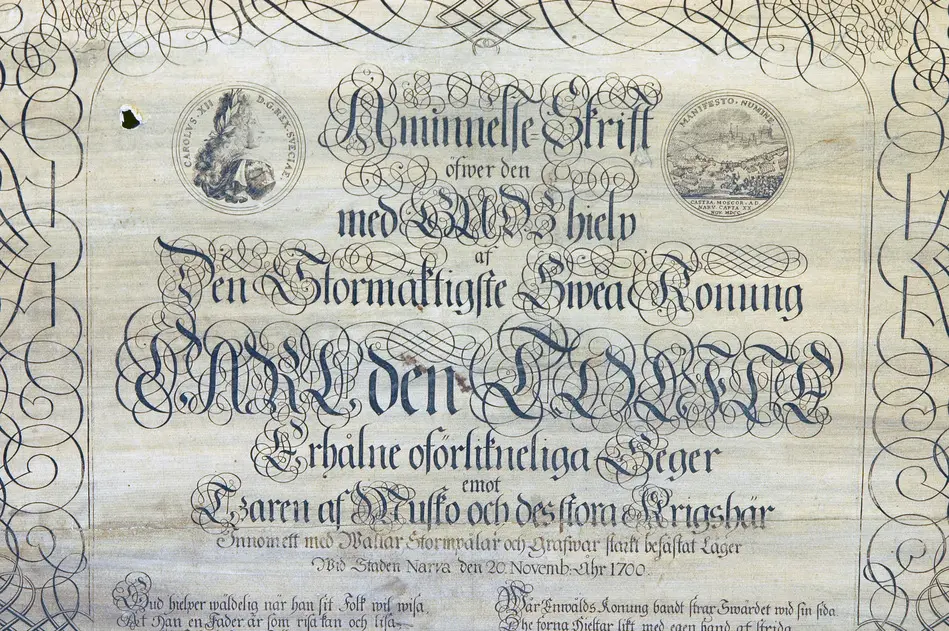 CAROLVS·XII D·G·REX·SVECIAE
MANIFESTO·NUMINE
CASTRA·MOSCOR·AD
NARV·CAPTA XX
NOV. MDCC.
Aminnelse-Skrift
öfwer den
med GUDS hielp
af
Den Stormäktigste Swea Konung
CARL den TOLFTE
Erhålne oförlikneliga Seger
emot
Czaren af Musko och des stora Krigshär
Innom ett med Wallar Stormpålar och Grafwar starkt befästat Läger
Wid Staden Narva den 20. Novemb: Åhr 1700.
Gud hielper wäldelig när han sit Folk wil wisa,
At Han en Fader är som risa kan och lisa
När Enwålds Konung bandt strax Swärdet wid sin sida
the forna Hieltar likt med egen hand at strida